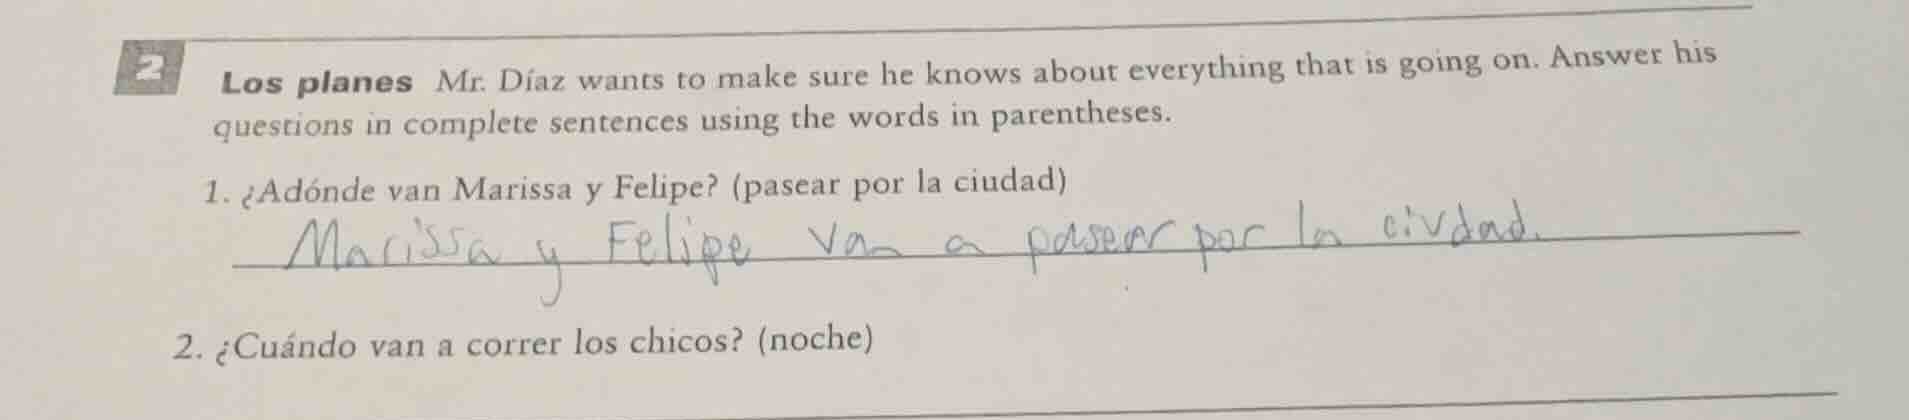 2
Los planes Mr. Díaz wants to make sure he knows about everything that is going on. Answer his
questions in complete sentences using the words in parentheses.
1. ¿Adónde van Marissa y Felipe? (pasear por la ciudad)
Marissa y Felipe van a pasear por la ciudad.
2. ¿Cuándo van a correr los chicos? (noche)